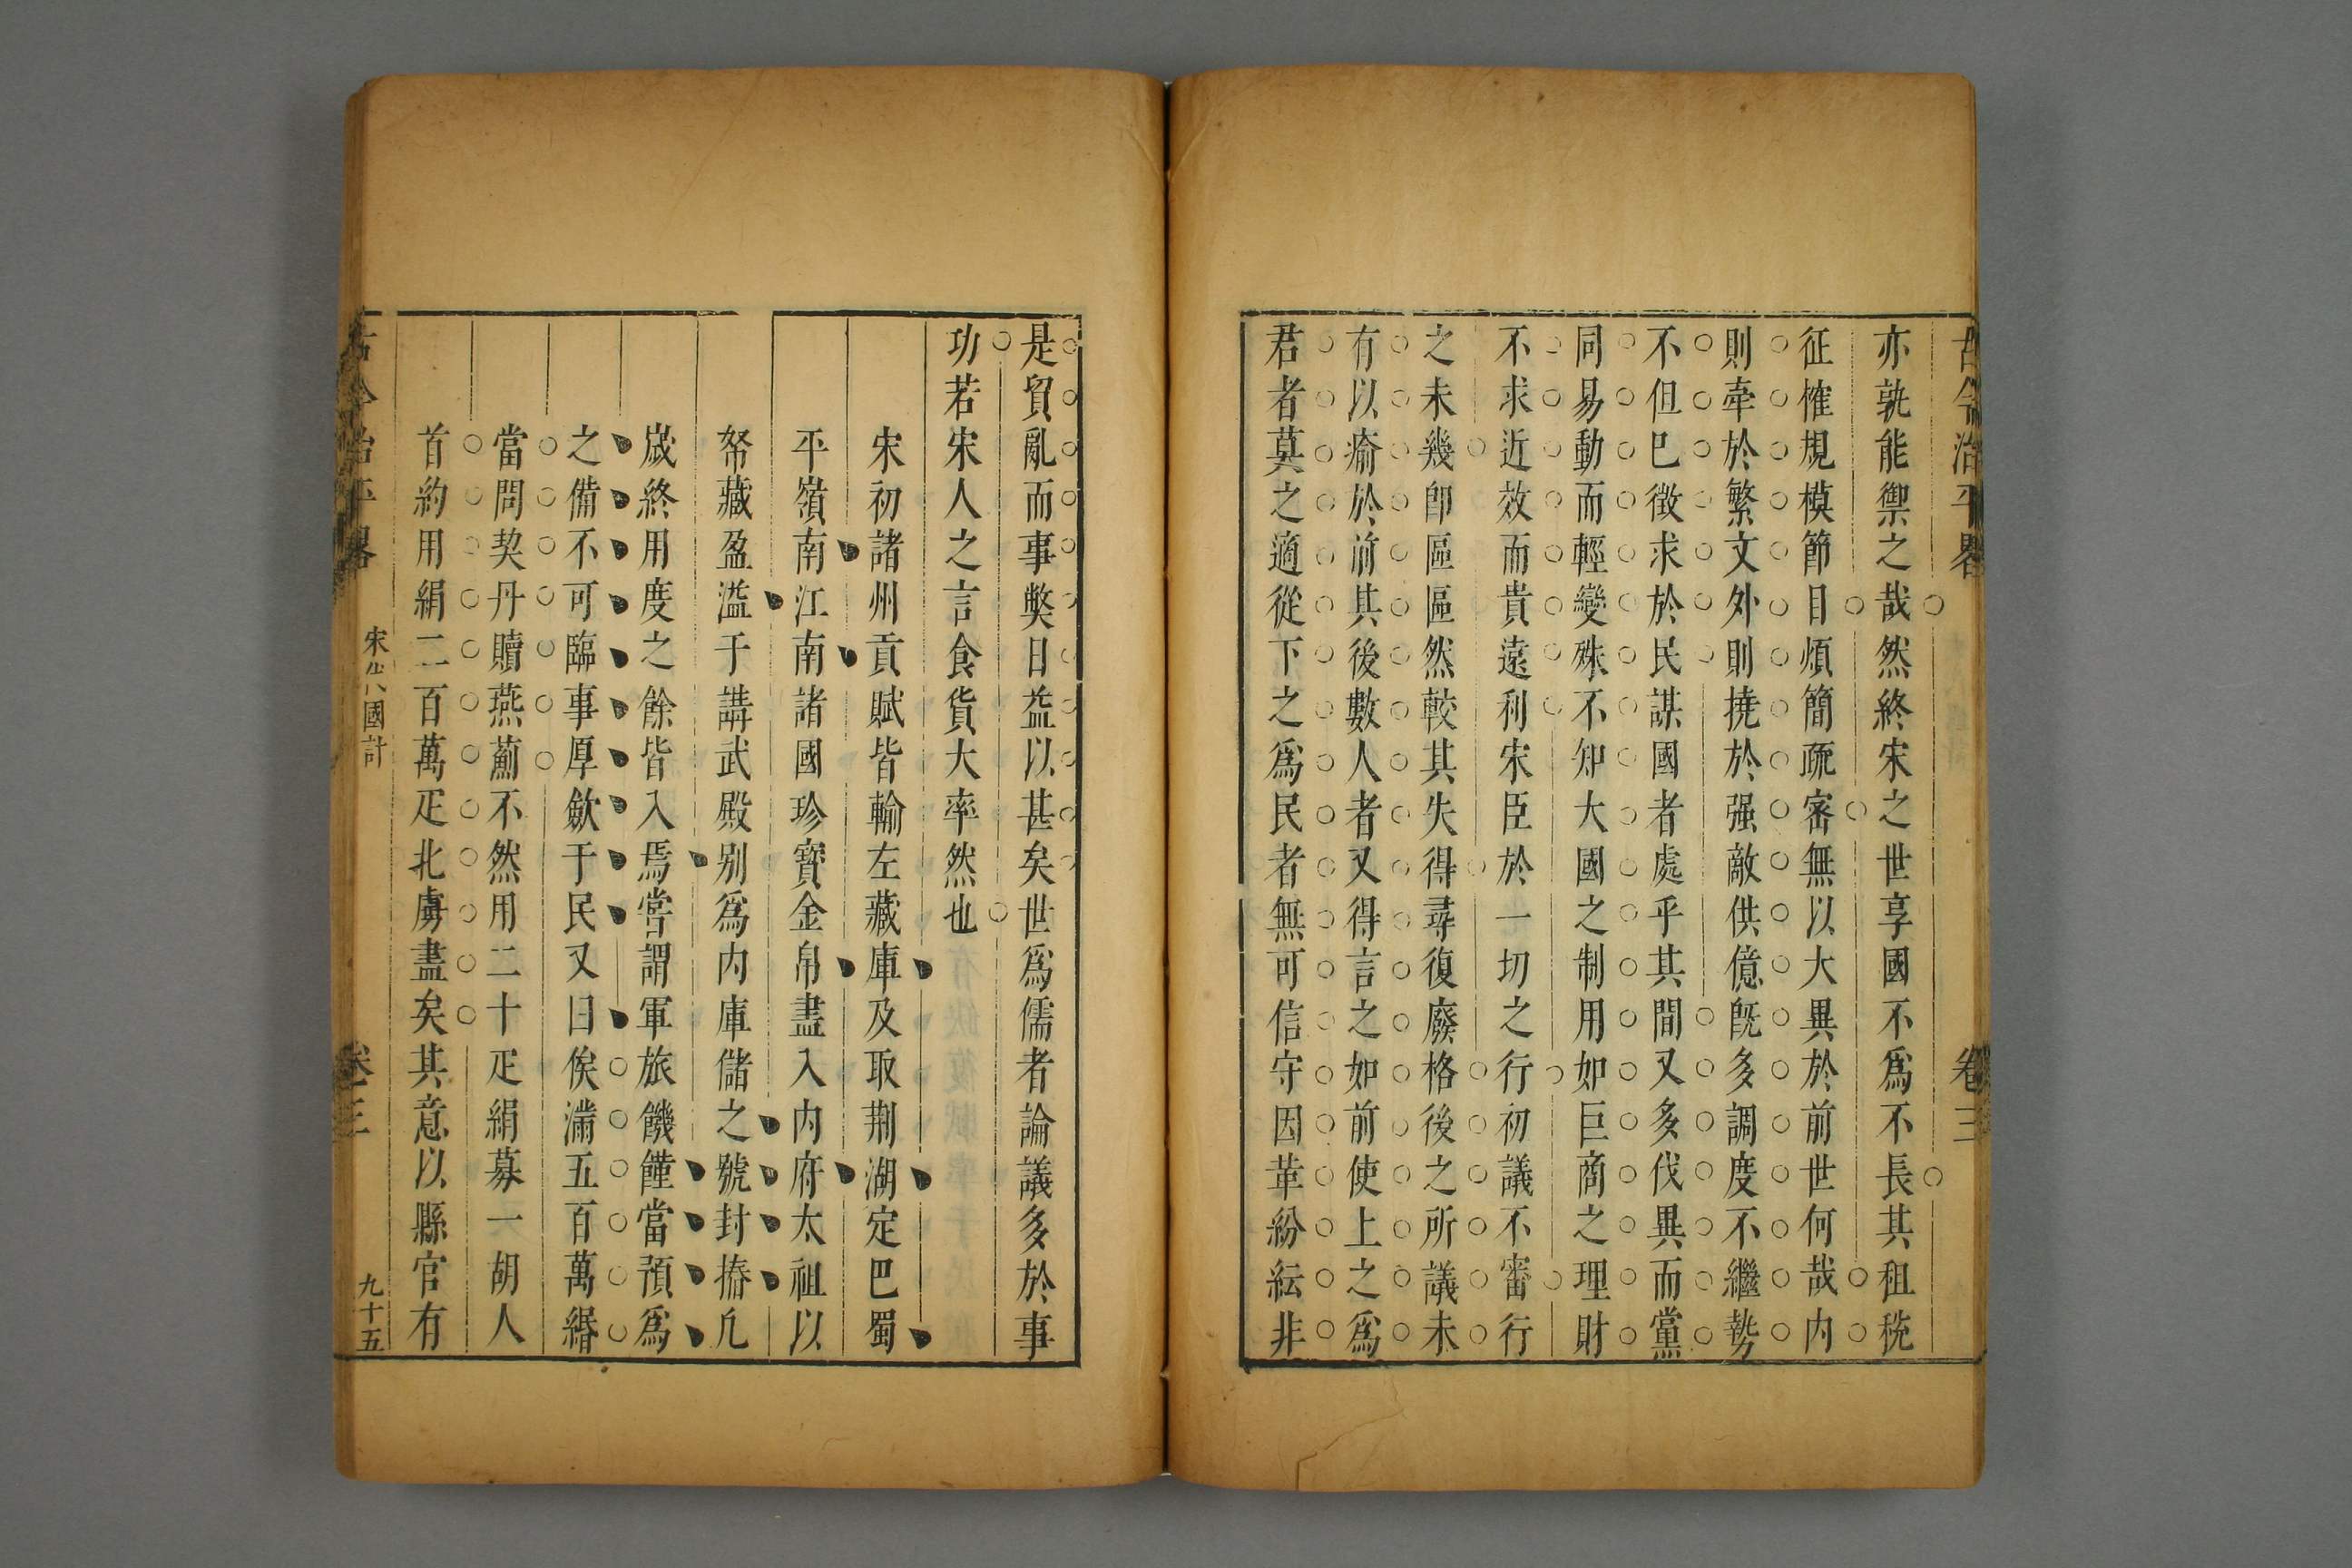 古今治平畧
卷三
亦孰能禦之哉然終宋之世享國不爲不長其租稅
征榷規模節目煩簡疏密無以大異於前世何哉内
則牽於繁文外則撓於强敵供億旣多調度不繼勢
不但已徵求於民謀國者處乎其間又多伐異而黨
同易動而輕變殊不知大國之制用如巨商之理財
不求近效而貴遠利宋臣於一切之行初議不審行
之未幾卽區區然較其失得尋復廢格後之所議未
有以瘉於前其後數人者又得言之如前使上之爲
君者莫之適從下之爲民者無可信守因革紛紜非
是貿亂而事獘日益以甚矣世爲儒者論議多於事
功若宋人之言食貨大率然也
宋初諸州貢賦皆輸左藏庫及取荆湖定巴蜀
平嶺南江南諸國珍寶金帛盡入内府太祖以
帑藏盈溢于講武殿别爲内庫儲之號封樁凡
歲終用度之餘皆入焉嘗謂軍旅饑饉當預爲
之備不可臨事厚斂于民又曰俟滿五百萬緡
當問契丹贖燕薊不然用二十疋絹募一胡人
首約用絹二百萬疋北虜盡矣其意以縣官有
古今治平畧
宋代國計
卷三
九十五